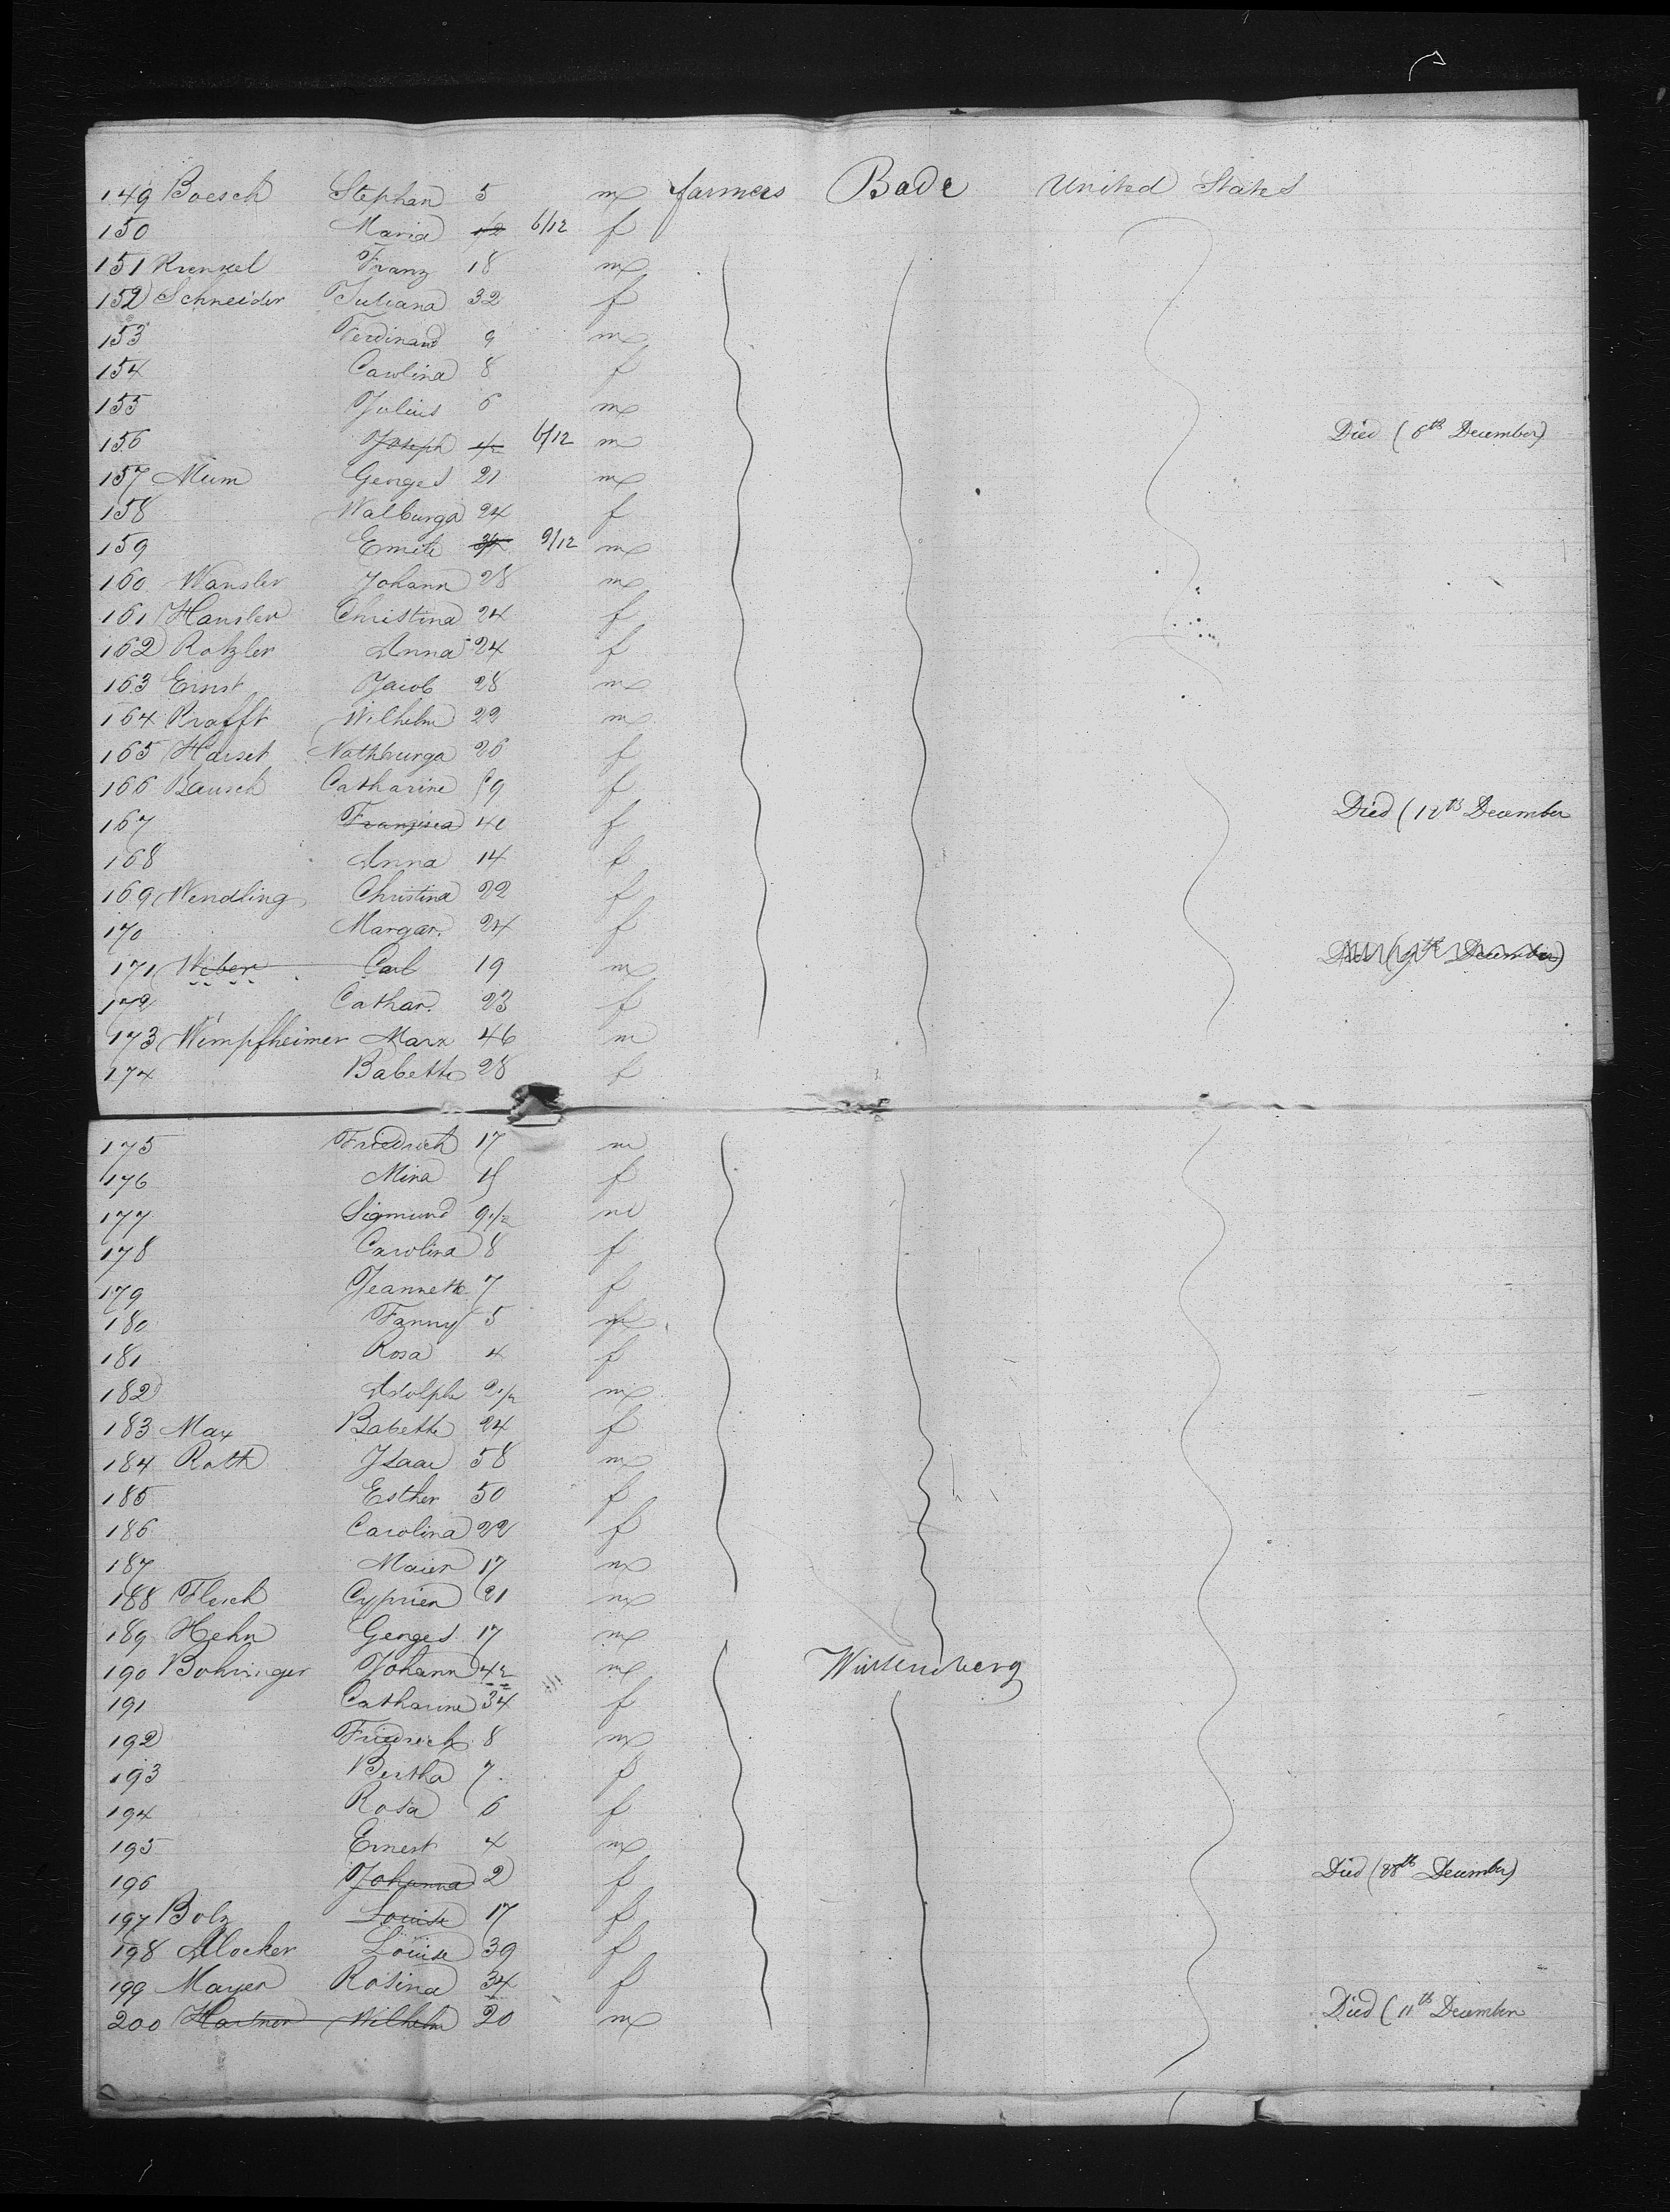 149 Boesch Stephan 5 m farmers Bade United States
150 Maria 1/2 6/12 f
151 Krenkel Franz 18 m
152 Schneider Juliana 32 f
153 Ferdinand 9 m
154 Carolina 8 f
155 Julius 6 m
156 Joseph 1/2 6/12 m Died (6th December)
157 Mum Georges 21 m
158 Walburga 24 f
159 Emile 3/4 9/12 m
160 Wansler Johann 28 m
161 Hansler Christina 24 f
162 Rotzler Anna 24 f
163 Ernst Jacob 28 m
164 Krafft Wilhelm 22 m
165 Harset Nothburga 26 f
166 Bausch Catharine f
167 Franzisca f Died (12th December
168 Anna 14 f
169 Wendling Christina 22 f
170 Margar. 24 f
171 Weber Carl 19 m Died (9th December)
172 Cathar. 23 f
173 Wimpfheimer Marx 46 m
174 Babette 28 f
175 Friedrich 17 m
176 Mina f
177 Sigmund 9 1/2 m
178 Carolina 8 f
179 Jeannette 7 f
180 Fanny 5
181 Rosa 4 f
182 Adolphe 2 1/2 m
183 Max Babette 24 f
184 Roth Isaac 58 m
185 Esther 50 f
186 Carolina 22 f
187 Maier 17 m
188 Flesch Cyprien 21 m
189 Hehn Georges 17 m
190 Bohringer Johann 42 m Würtemberg
191 Catharine 34 f
192 Friedrich 8 m
193 Bertha 7 f
194 Rosa 6 f
195 Ernest 4 m
196 Johanna 2 f Died (28th December)
197 Bolz Louise 17 f
198 Louise 39 f
199 Mayer Rosina 34 f
200 Hartner Wilhelm 20 m Died (11th December